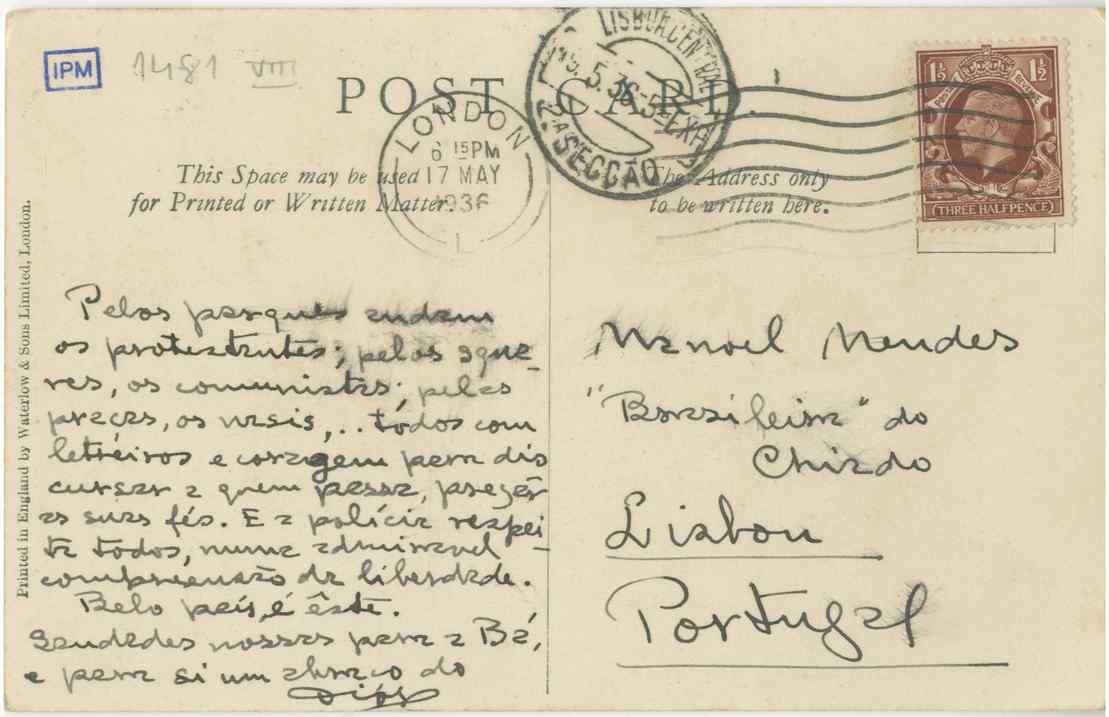 IPM
1481 VIII
POST CARD.
LISBOA CENTRAL
5.36
2ª SECÇÃO
LONDON
6 15 PM
17 MAY
1936
1
This Space may be used
for Printed or Written Matter.
The Address only
to be written here.
1½ 1½
POSTAGE REVENUE
(THREE HALFPENCE)
Printed in England by Waterlow & Sons Limited, London.
Pelos parques andam
os protestantes; pelos squa-
res, os comunistas; pelas
praças, os nasis,.. todos com
letreiros e coragem para dis
cursar a quem passa, pregar
as suas fés. E a polícia respei-
ta todos, numa admiravel
compreensão da liberdade.
Belo país, é êste.
Saudades nossas para a Bá,
e para si um abraço do
Manoel Mendes
"Brasileira" do
Chiado
Lisboa
Portugal